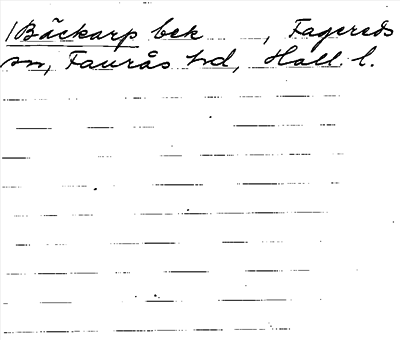 1 Bäckarp bek , Fagereds
sn, Faurås hd, Hall. l.